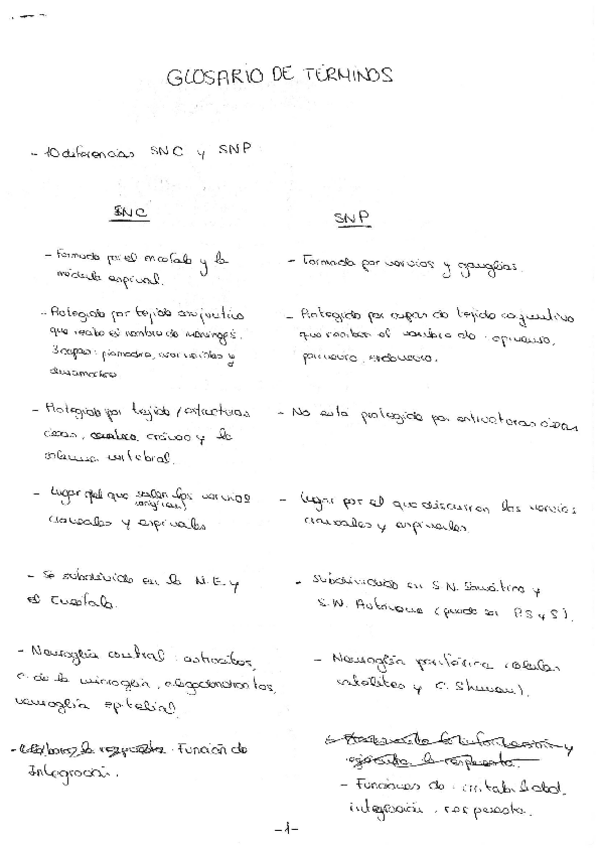 GLOSARIO DE TÉRMINOS
- 10 diferencias SNC y SNP
SNC
- Formado por el encefalo y la
médula espinal.
- Protegido por tejido conjuntivo
que recibe el nombre de meninges.
3 capas: piamadre, aracnoides y
duramadre
- Protegido por tejido/estructuras
óseas, cráneo y la
columna vertebral.
- Lugar del que salen los nervios
(originan)
craneales y espinales
- Se subdivide en la M.E. y
el Encéfalo.
- Neuroglía central: astrocitos,
c. de la microglía, oligodendrocitos,
neuroglía epitelial.
- Elabora la respuesta. Función de
Integración.
SNP
- Formado por nervios y ganglios.
- Protegido por capas de tejido conjuntivo
que reciben el nombre de: epineuro,
perineuro, endoneuro.
- No esta protegido por estructuras óseas
- Lugar por el que discurren los nervios
craneales y espinales.
- Subdividido en S.N. Somático y
S.N. Autónomo (puede ser P.S y S).
- Neuroglía periférica: celulas
satélites y C. Shwan).
la información y
ejecuta la respuesta.
- Funciones de: irritabilidad,
integración, respuesta.
-1-